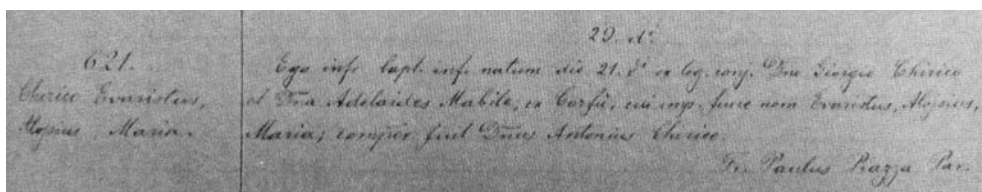 29. d.º
621.
Chirico Evaristus,
Aloysius Maria.
Ego infr. bapt. inf. natum die 21. d.º ex leg. conj. Dno Giorgio Chirico
et Dna Adelaides Mabile, ex Corfù, cui imp. fuere nom Evaristus, Aloysius,
Maria; comper fuit Dnus Antonius Chirico.
Fr. Paulus Piazza Par.